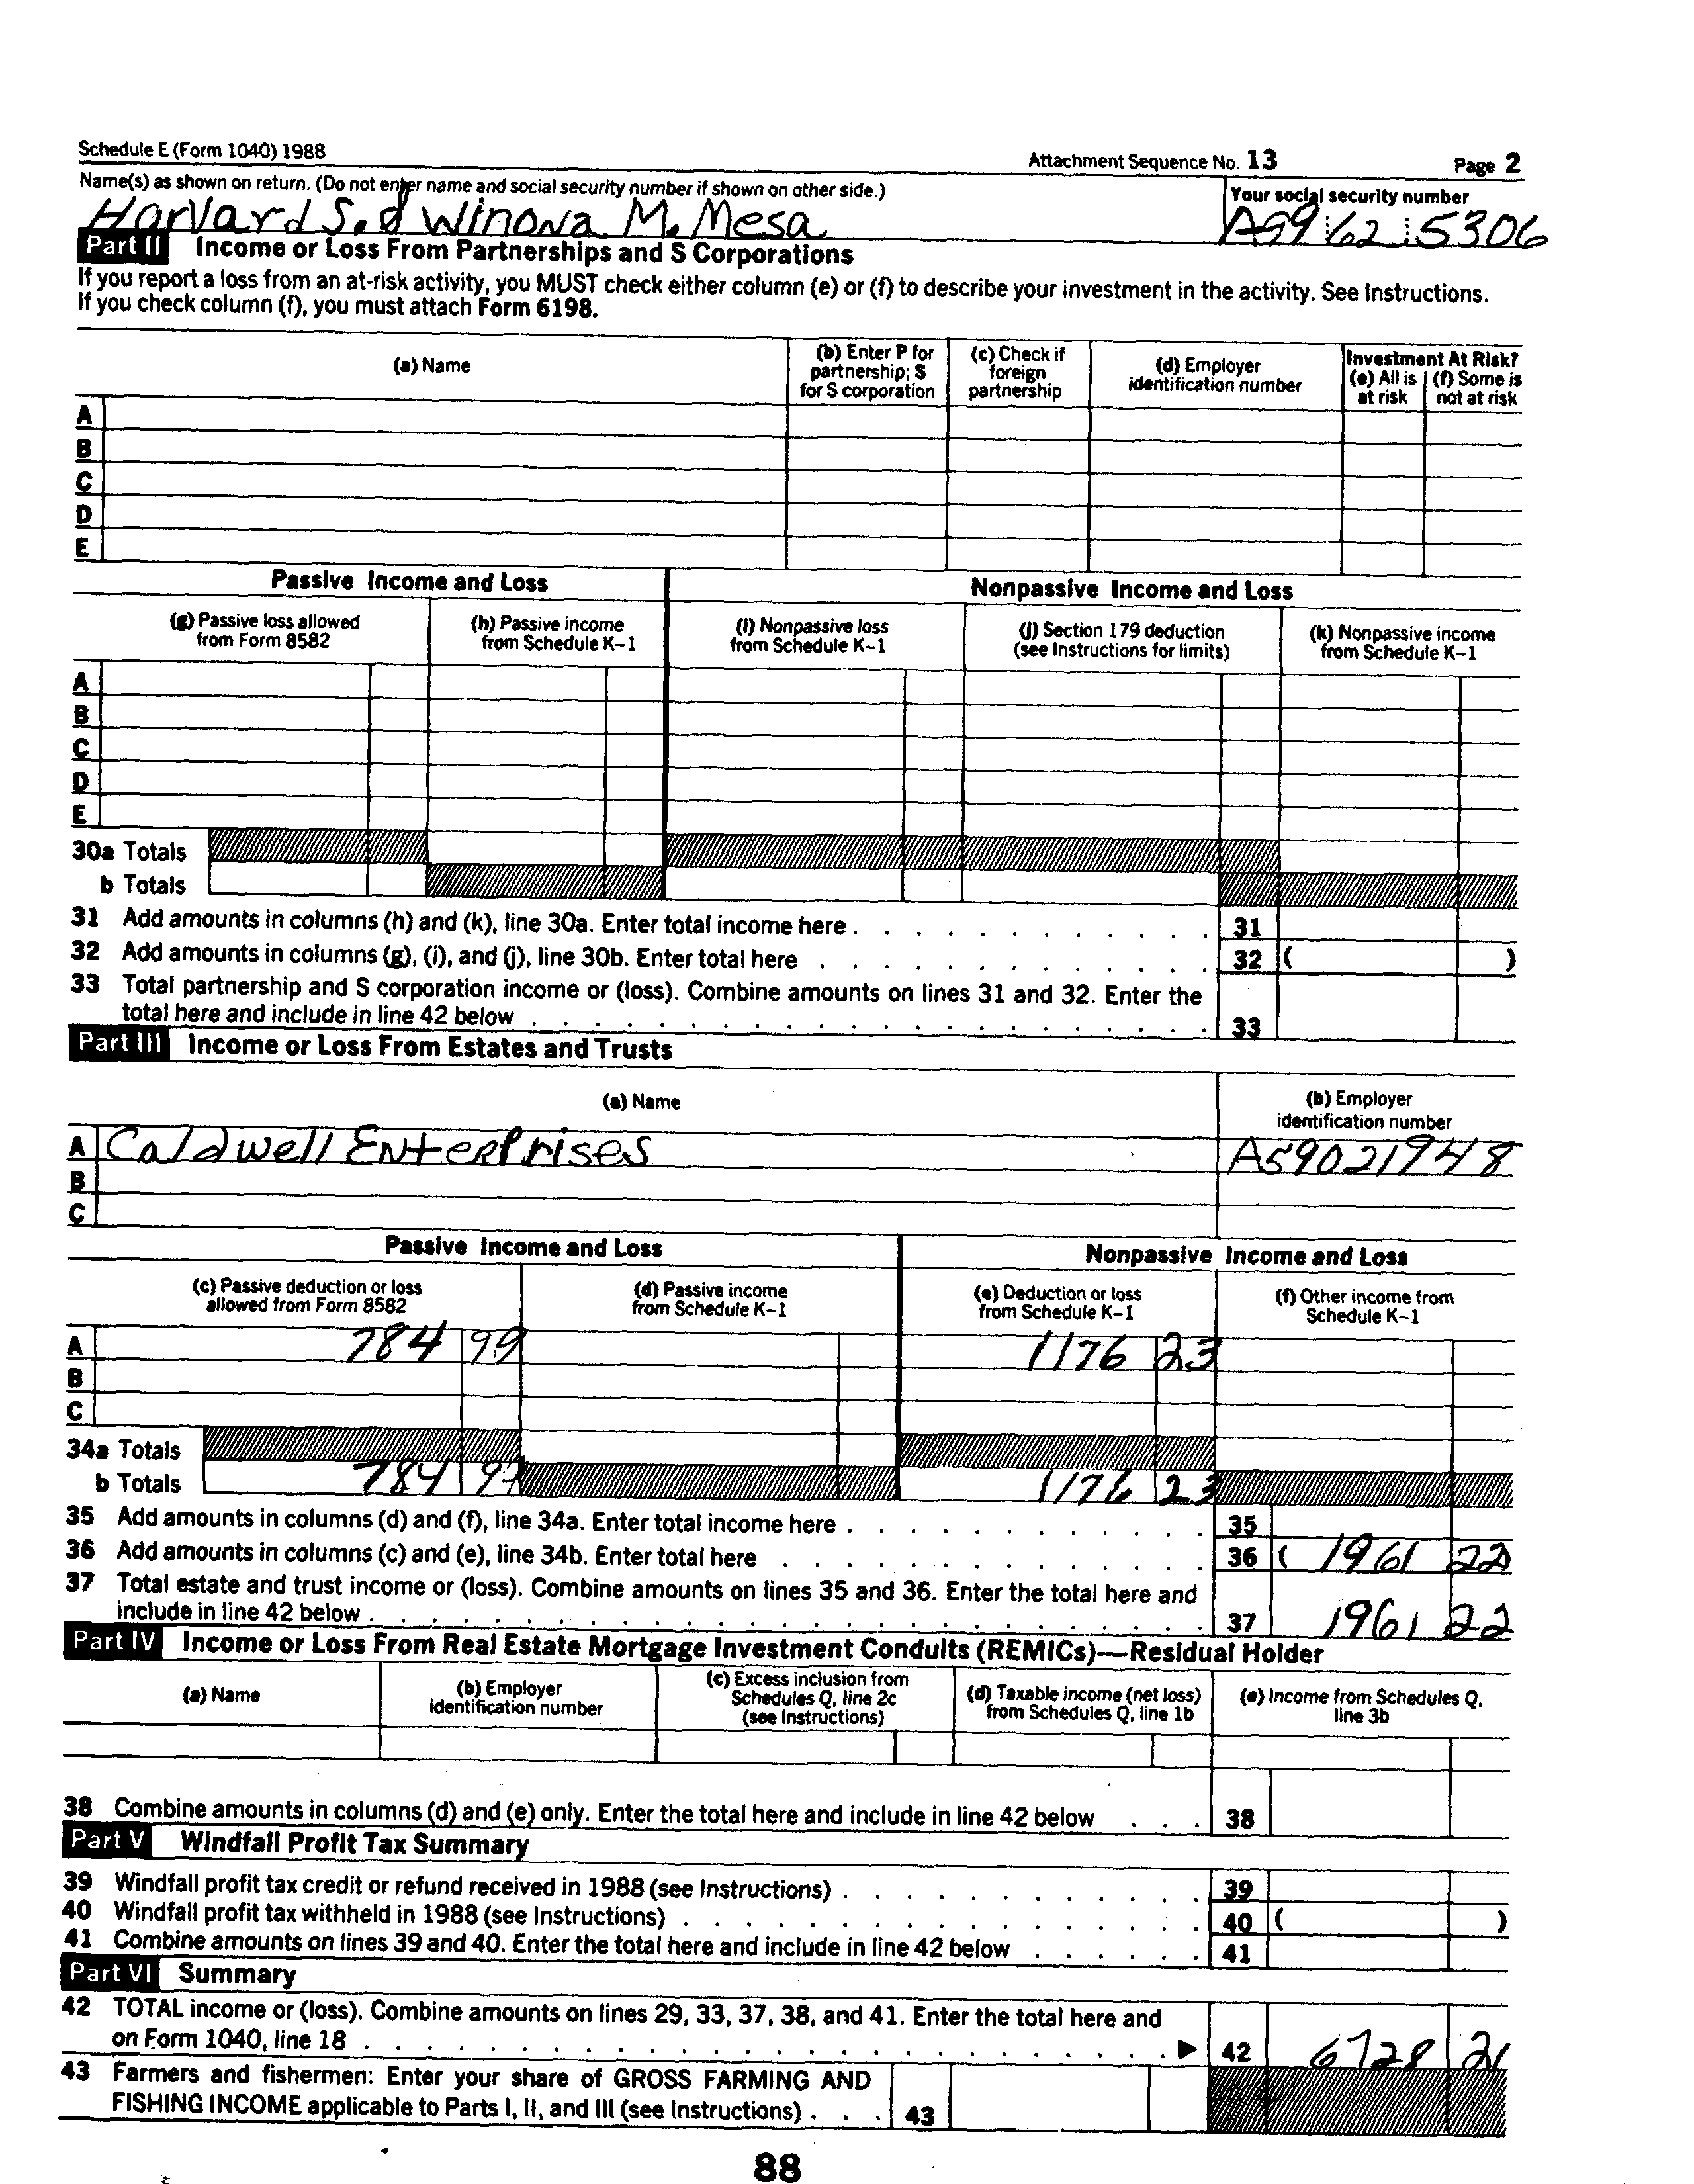 Schedule E (Form 1040) 1988
Attachment Sequence No. 13
Page 2
Name(s) as shown on return. (Do not enter name and social security number if shown on other side.)
Your social security number
Harvard S. & Winona M. Mesa
A99 62 5306
Part II Income or Loss From Partnerships and S Corporations
If you report a loss from an at-risk activity, you MUST check either column (e) or (f) to describe your investment in the activity. See Instructions.
If you check column (f), you must attach Form 6198.
(a) Name
(b) Enter P for partnership; S for S corporation
(c) Check if foreign partnership
(d) Employer identification number
Investment At Risk?
(e) All is at risk
(f) Some is not at risk
A
B
C
D
E
Passive Income and Loss
Nonpassive Income and Loss
(g) Passive loss allowed from Form 8582
(h) Passive income from Schedule K-1
(i) Nonpassive loss from Schedule K-1
(j) Section 179 deduction (see Instructions for limits)
(k) Nonpassive income from Schedule K-1
A
B
C
D
E
30a Totals
b Totals
31 Add amounts in columns (h) and (k), line 30a. Enter total income here . . . 31
32 Add amounts in columns (g), (i), and (j), line 30b. Enter total here . . . 32 ( )
33 Total partnership and S corporation income or (loss). Combine amounts on lines 31 and 32. Enter the
total here and include in line 42 below . . . 33
Part III Income or Loss From Estates and Trusts
(a) Name
(b) Employer identification number
A Caldwell Enterprises A59021948
B
C
Passive Income and Loss
Nonpassive Income and Loss
(c) Passive deduction or loss allowed from Form 8582
(d) Passive income from Schedule K-1
(e) Deduction or loss from Schedule K-1
(f) Other income from Schedule K-1
A 784 99 1176 23
B
C
34a Totals
b Totals 784 99 1176 23
35 Add amounts in columns (d) and (f), line 34a. Enter total income here . . . 35
36 Add amounts in columns (c) and (e), line 34b. Enter total here . . . 36 ( 1961 22 )
37 Total estate and trust income or (loss). Combine amounts on lines 35 and 36. Enter the total here and
include in line 42 below . . . 37 1961 22
Part IV Income or Loss From Real Estate Mortgage Investment Conduits (REMICs)—Residual Holder
(a) Name
(b) Employer identification number
(c) Excess inclusion from Schedules Q, line 2c (see Instructions)
(d) Taxable income (net loss) from Schedules Q, line 1b
(e) Income from Schedules Q, line 3b
38 Combine amounts in columns (d) and (e) only. Enter the total here and include in line 42 below . . . 38
Part V Windfall Profit Tax Summary
39 Windfall profit tax credit or refund received in 1988 (see Instructions) . . . 39
40 Windfall profit tax withheld in 1988 (see Instructions) . . . 40 ( )
41 Combine amounts on lines 39 and 40. Enter the total here and include in line 42 below . . . 41
Part VI Summary
42 TOTAL income or (loss). Combine amounts on lines 29, 33, 37, 38, and 41. Enter the total here and
on Form 1040, line 18 . . . ▶ 42 6728 21
43 Farmers and fishermen: Enter your share of GROSS FARMING AND
FISHING INCOME applicable to Parts I, II, and III (see Instructions) . . . 43
88